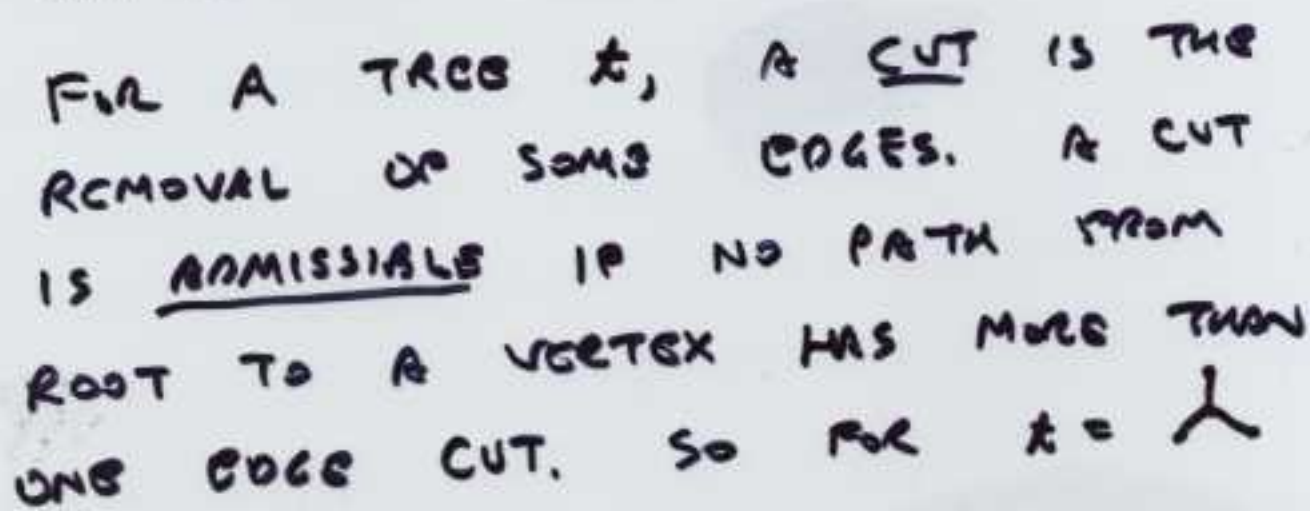 FOR A TREE t, A CUT IS THE
REMOVAL OF SOME EDGES. A CUT
IS ADMISSIBLE IF NO PATH FROM
ROOT TO A VERTEX HAS MORE THAN
ONE EDGE CUT. SO FOR t =